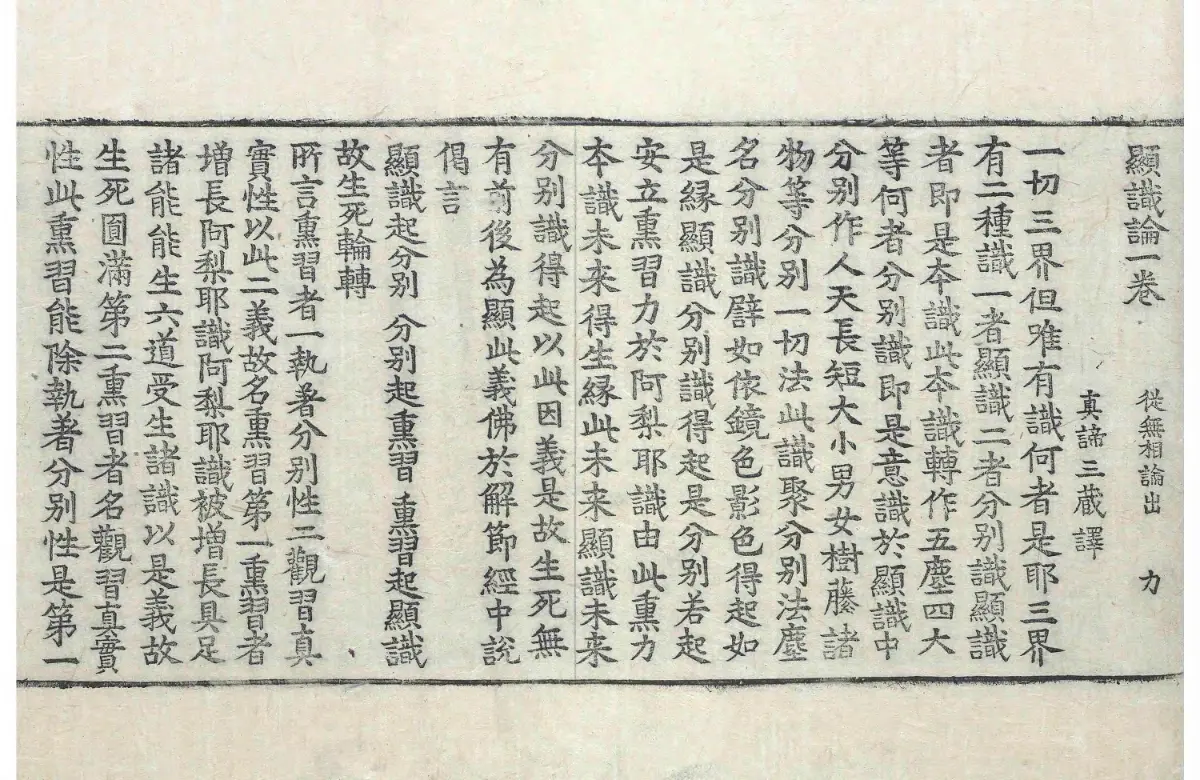 顯識論一卷 從無相論出 力
真諦三藏譯
一切三界但唯有識何者是耶三界
有二種識一者顯識二者分別識顯識
者即是本識此本識轉作五塵四大
等何者分別識即是意識於顯識中
分別作人天長短大小男女樹藤諸
物等分別一切法此識聚分別法塵
名分別識譬如依鏡色影色得起如
是緣顯識分別識得起是分別若起
安立熏習力於阿梨耶識由此熏力
本識未來得生緣此未來顯識未來
分別識得起以此因義是故生死無
有前後為顯此義佛於解節經中說
偈言
顯識起分別 分別起熏習 熏習起顯識
故生死輪轉
所言熏習者一執著分別性二觀習真
實性以此二義故名熏習第一熏習者
增長阿梨耶識阿梨耶識被增長具足
諸能能生六道受生諸識以是義故
生死圓滿第二熏習者名觀習真實
性此熏習能除執著分別性是第一